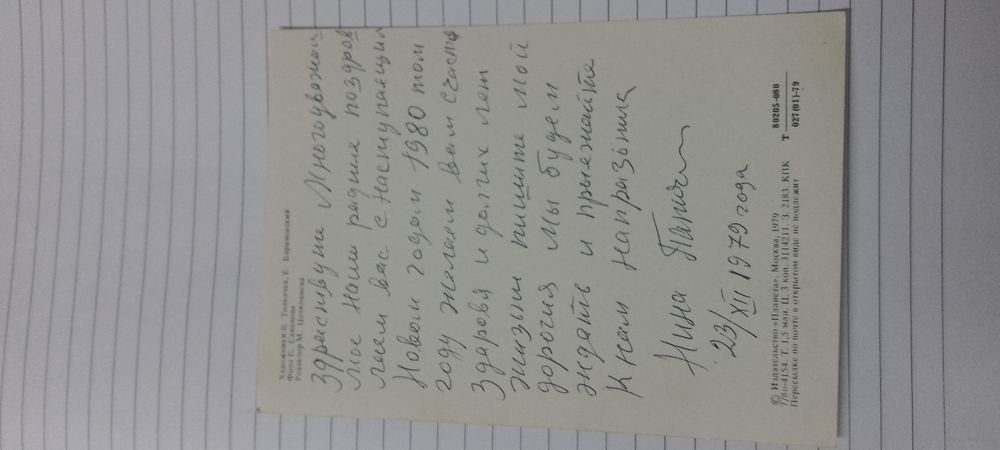 Художники В. Толкачев, Е. Барановский
Фото Е. Савалова
Редактор М. Цитковиева
Здраствуйте Многоуважаи
мое Наши родние поздров
ляем вас с Наступаящим
Новом годом 1980 том
году желаем вам счастя
Здаровя и долгих лет
жизьни пишите мой
дорогия мы будем
ждать и прыежайте
К нам на празьника
Нина
23/XII 1979 года
© Издательство «Планета». Москва, 1979
7/80-4154. Т. 1,5 млн. Ц. 3 коп. 3114211. З. 2183. КПК
Пересылке по почте в открытом виде не подлежит
Т 80205-080
027(01)-79